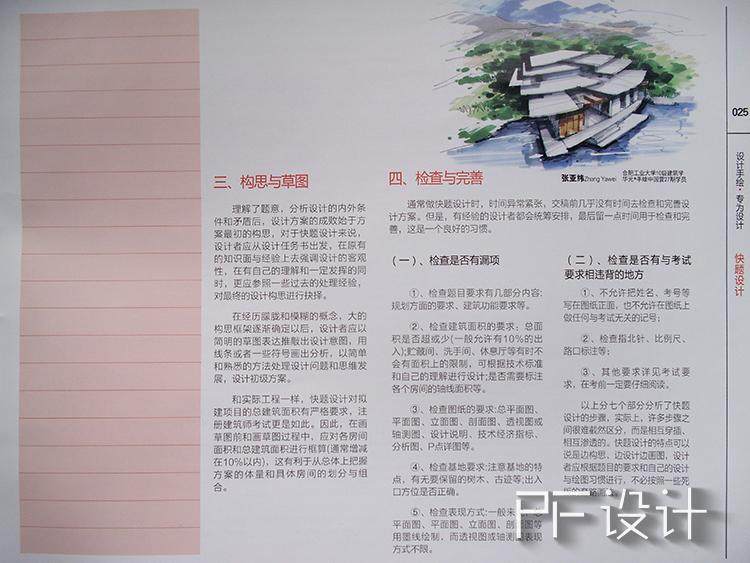 025
设计手绘·专为设计
快题设计
张亚纬Zhang Yawei
合肥工业大学10级建筑学
华元*手绘中国营27期学员
三、构思与草图
理解了题意，分析设计的内外条
件和矛盾后，设计方案的成败始于方
案最初的构思，对于快题设计来说，
设计者应从设计任务书出发，在原有
的知识面与经验上去强调设计的客观
性，在有自己的理解和一定发挥的同
时，更应参照一些过去的处理经验，
对最终的设计构思进行抉择。
在经历朦胧和模糊的概念，大的
构思框架逐渐确定以后，设计者应以
简明的草图表达推敲出设计意图，用
线条或者一些符号画出分析，以简单
和熟悉的方法处理设计问题和思维发
展，设计初级方案。
和实际工程一样，快题设计对拟
建项目的总建筑面积有严格要求，注
册建筑师考试更是如此。因此，在画
草图前和画草图过程中，应对各房间
面积和总建筑面积进行框算(通常增减
在10%以内)，这有利于从总体上把握
方案的体量和具体房间的划分与组
合。
四、检查与完善
通常做快题设计时，时间异常紧张，交稿前几乎没有时间去检查和完善设
计方案。但是，有经验的设计者都会统筹安排，最后留一点时间用于检查和完
善，这是一个良好的习惯。
（一）、检查是否有漏项
①、检查题目要求有几部分内容:
规划方面的要求、建筑功能要求等。
②、检查建筑面积的要求：总面
积是否超或少(一般允许有10%的出
入);贮藏间、洗手间、休息厅等有时不
会有面积上的限制，可根据技术标准
和自己的理解进行设计;是否需要标注
各个房间的轴线面积等。
③、检查图纸的要求:总平面图、
平面图、立面图、剖面图、透视图或
轴测图、设计说明、技术经济指标、
分析图、P点详图等。
④、检查基地要求:注意基地的特
点，有无要保留的树木、古迹等;出入
口方位是否正确。
⑤、检查表现方式:一般来
平面图、平面图、立面图、剖面图等
用墨线绘制，而透视图或轴测图表现
方式不限。
（二）、检查是否有与考试
要求相违背的地方
①、不允许把姓名、考号等
写在图纸正面，也不允许在图纸上
做任何与考试无关的记号；
②、检查指北针、比例尺、
路口标注等；
③、其他要求详见考试要
求，在考前一定要仔细阅读。
以上分七个部分分析了快题
设计的步骤，实际上，许多步骤之
间很难截然区分，而是相互穿插、
相互渗透的。快题设计的特点可以
说是边构思、边设计边画图，设计者
应根据题目的要求和自己的设计
与绘图习惯进行，不必按照一些死
PF设计